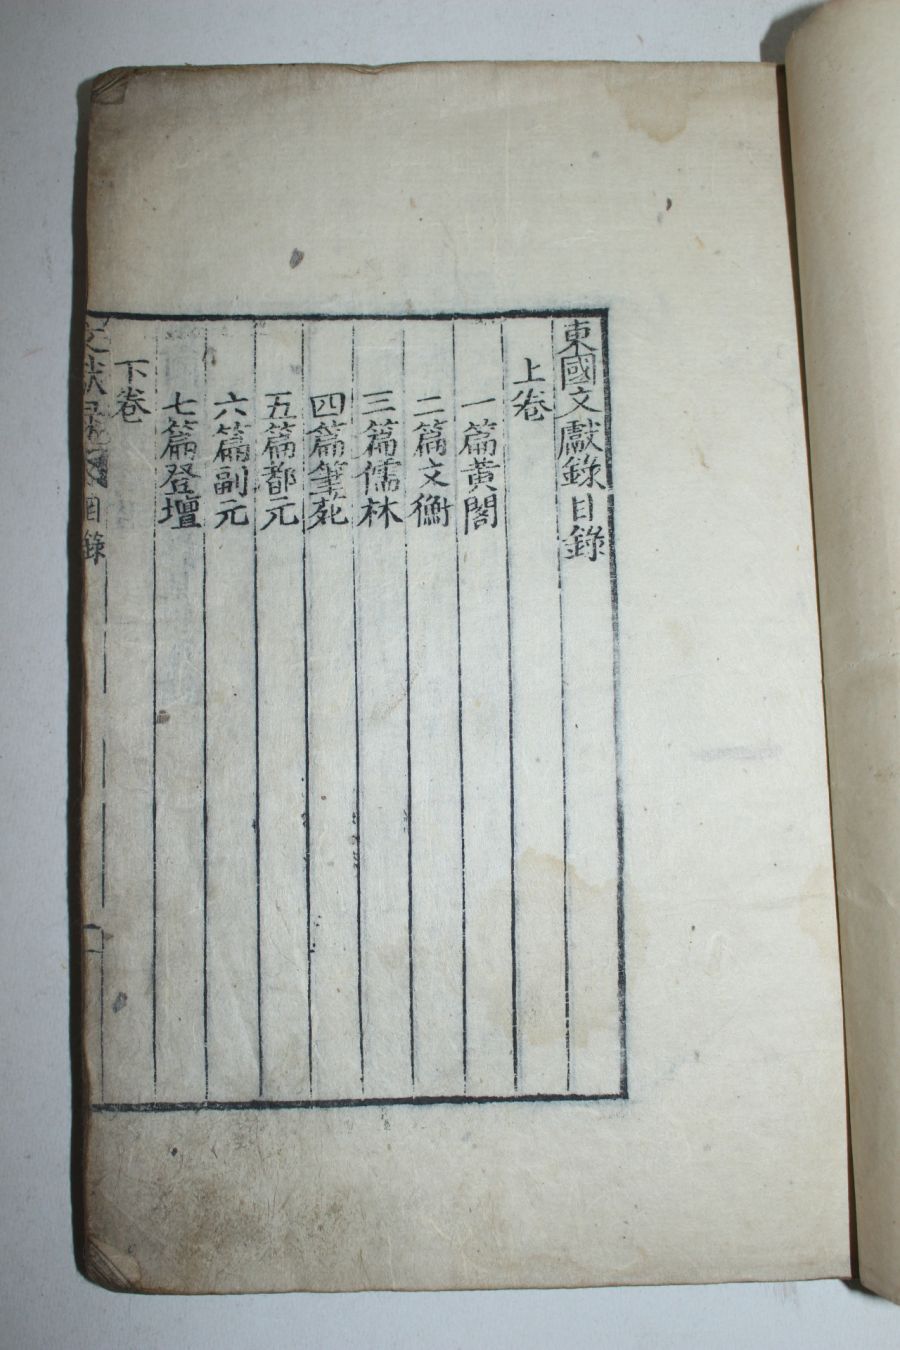 東國文獻錄目錄
上卷
一篇黃閣
二篇文衡
三篇儒林
四篇筆苑
五篇都元
六篇副元
七篇登壇
下卷
目錄